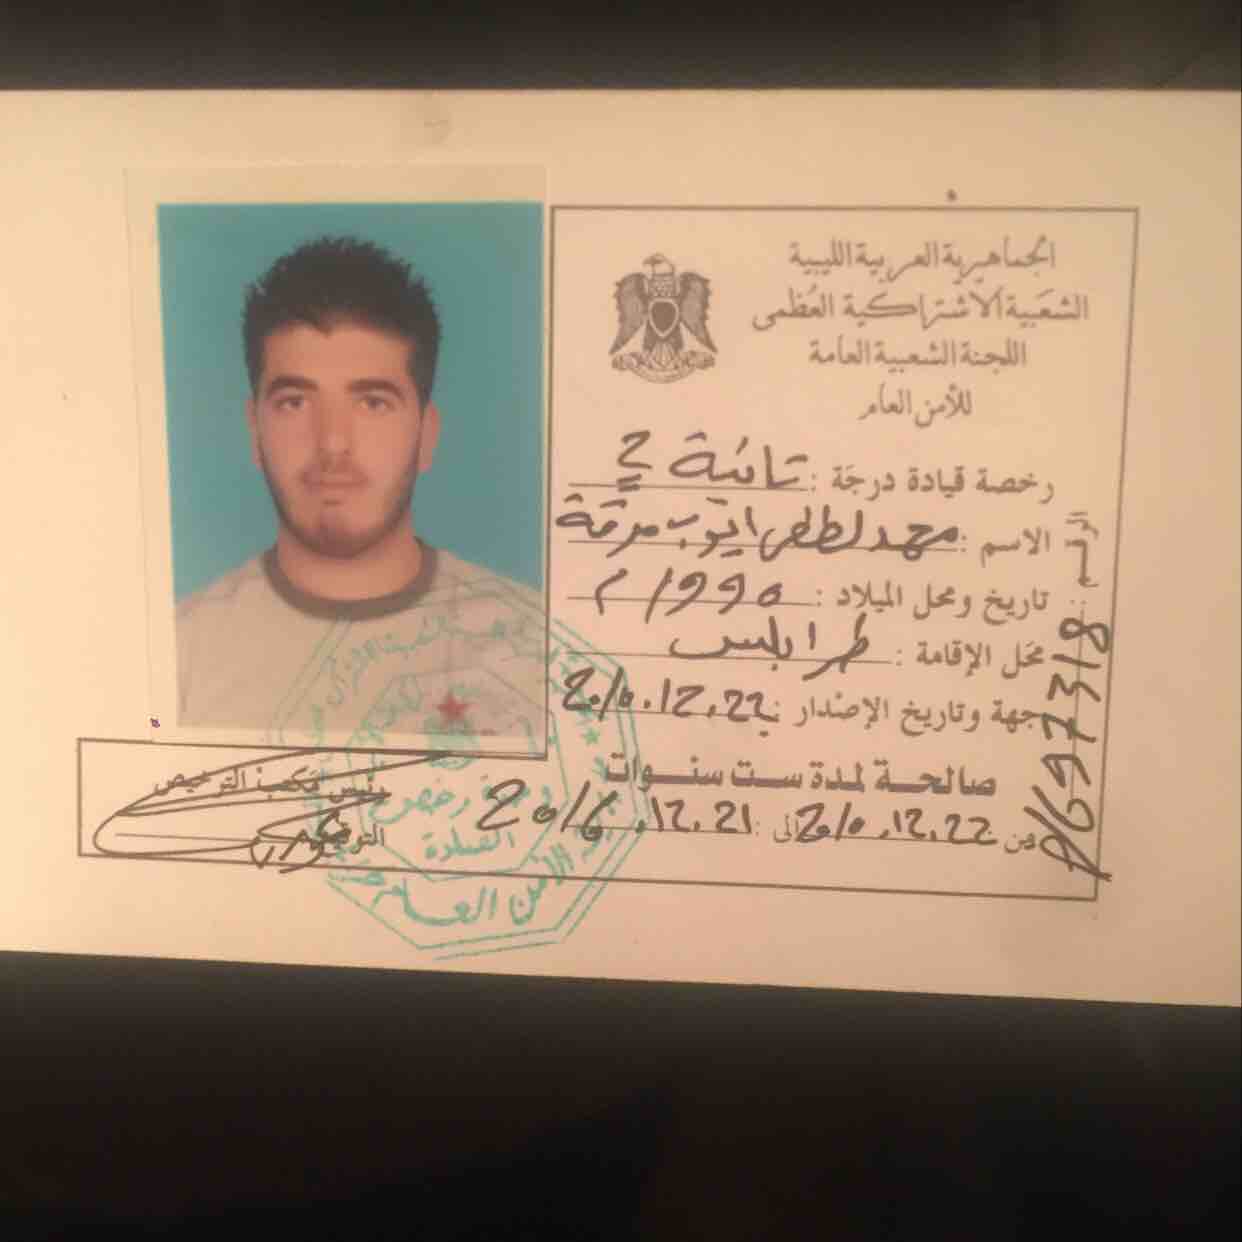 الجماهيرية العربية الليبية
الشعبية الاشتراكية العظمى
اللجنة الشعبية العامة
للأمن العام
رخصة قيادة درجَة :
الاسم : محمد لطفي ايوب مرقة
تاريخ ومحل الميلاد : 1990 م
محَل الإقامة : طرابلس
جهة وتاريخ الإصْدار : 2010.12.22
صالحـة لمدة ست سنـوات
من : 2010.12.22 الى : 2016.12.21
الرقم
رئيس مكتب الترخيص
التوقيع
رخص
القيادة
الأمن العام